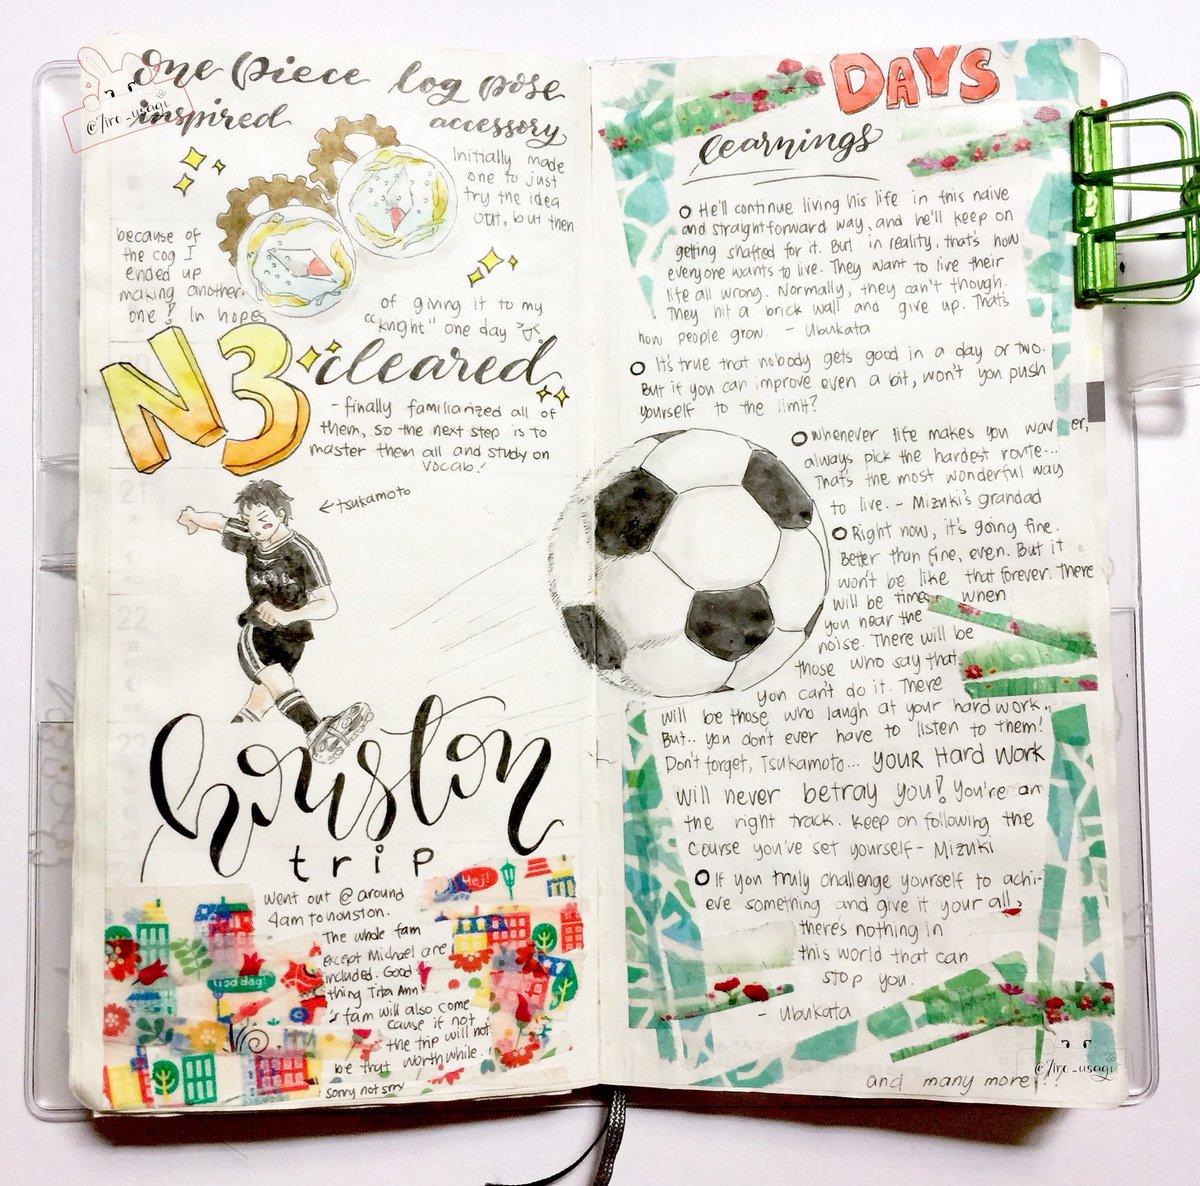 one piece log pose
inspired accessory
@7iro_usagi
Initially made
one to just
try the idea
out, but then
because of
the cog I
ended up
making another
one! In hopes
of giving it to my
"knight" one day
N3 cleared
- finally familiarized all of
them, so the next step is to
master them all and study on
vocab!
21
←tsukamoto
22
23
houston
trip
Yej!
went out @ around
4am to houston.
The whole fam
except Michael are
included. Good
thing Tita Ann
's fam will also come
cause if not
the trip will not
be that worthwhile.
sorry not srry
DAYS
learnings
○ He'll continue living his life in this naive
and straightforward way, and he'll keep on
getting shafted for it. But in reality, that's how
everyone wants to live. They want to live their
life all wrong. Normally, they can't though.
They hit a brick wall and give up. That's
how people grow. - Ubukata
○ It's true that nobody gets good in a day or two.
But if you can improve even a bit, won't you push
yourself to the limit?
○ Whenever life makes you waver,
always pick the hardest route...
That's the most wonderful way
to live. - Mizuki's grandad
○ Right now, it's going fine.
Better than fine, even. But it
won't be like that forever. There
will be times when
you hear the
noise. There will be
those who say that
you can't do it. There
will be those who laugh at your hard work.
But.. you don't ever have to listen to them!
Don't forget, Tsukamoto... YOUR HARD WORK
will never betray you! You're on
the right track. Keep on following the
course you've set yourself - Mizuki
○ If you truly challenge yourself to achi-
eve something and give it your all,
theres nothing in
this world that can
stop you.
- Ubukata
@7iro_usagi
and many more!!!